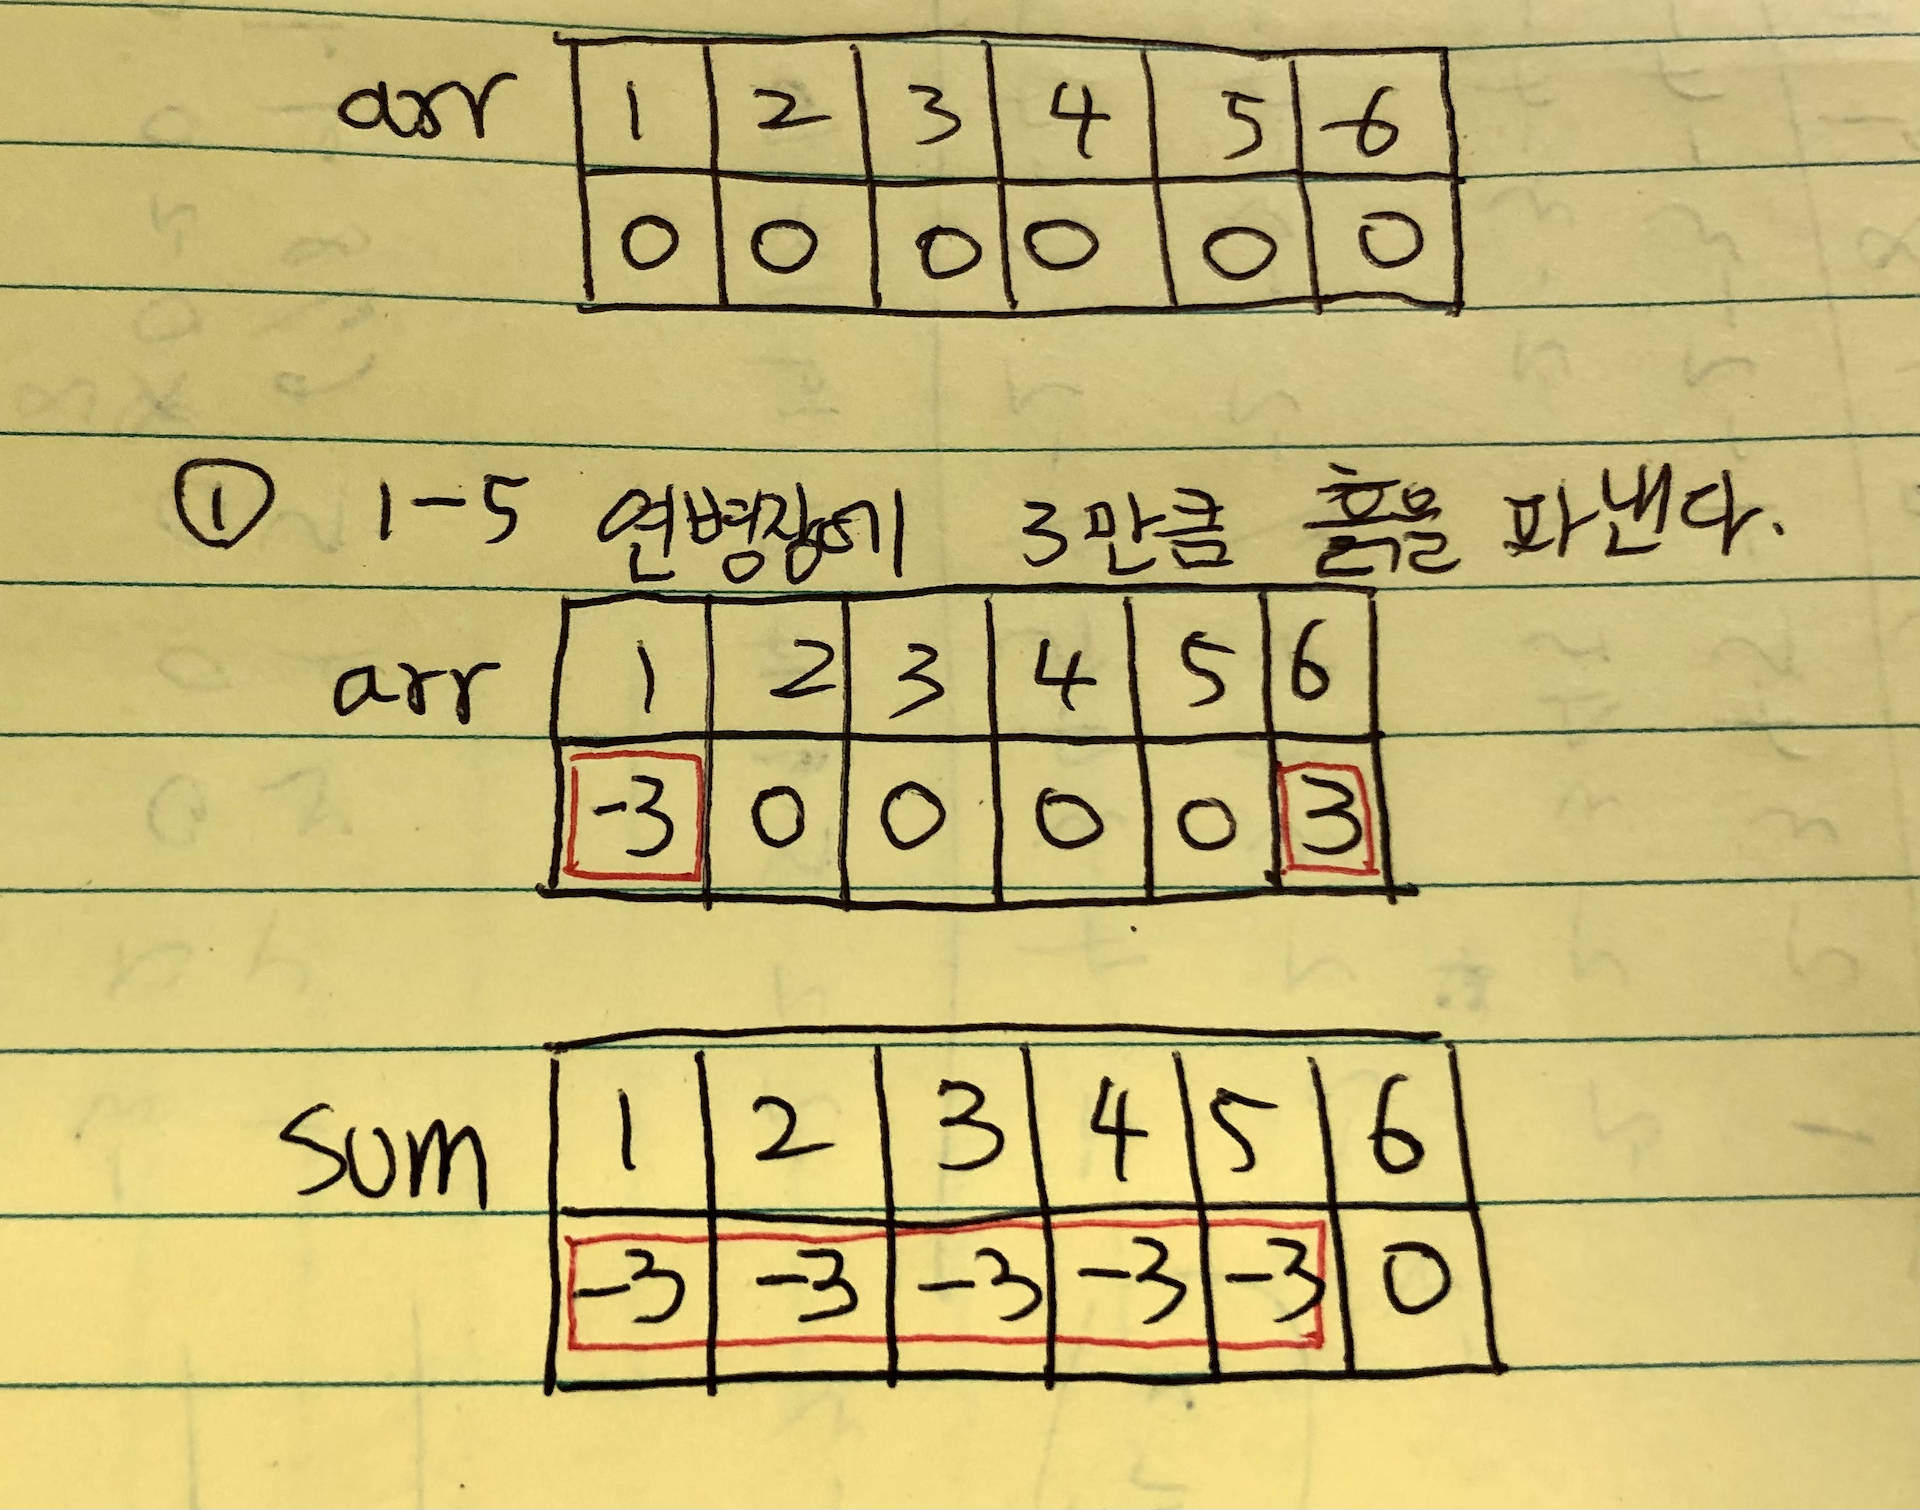 arr 1 2 3 4 5 6
0 0 0 0 0 0
① 1-5 연병장에 3만큼 흙을 파낸다.
arr 1 2 3 4 5 6
-3 0 0 0 0 3
sum 1 2 3 4 5 6
-3 -3 -3 -3 -3 0